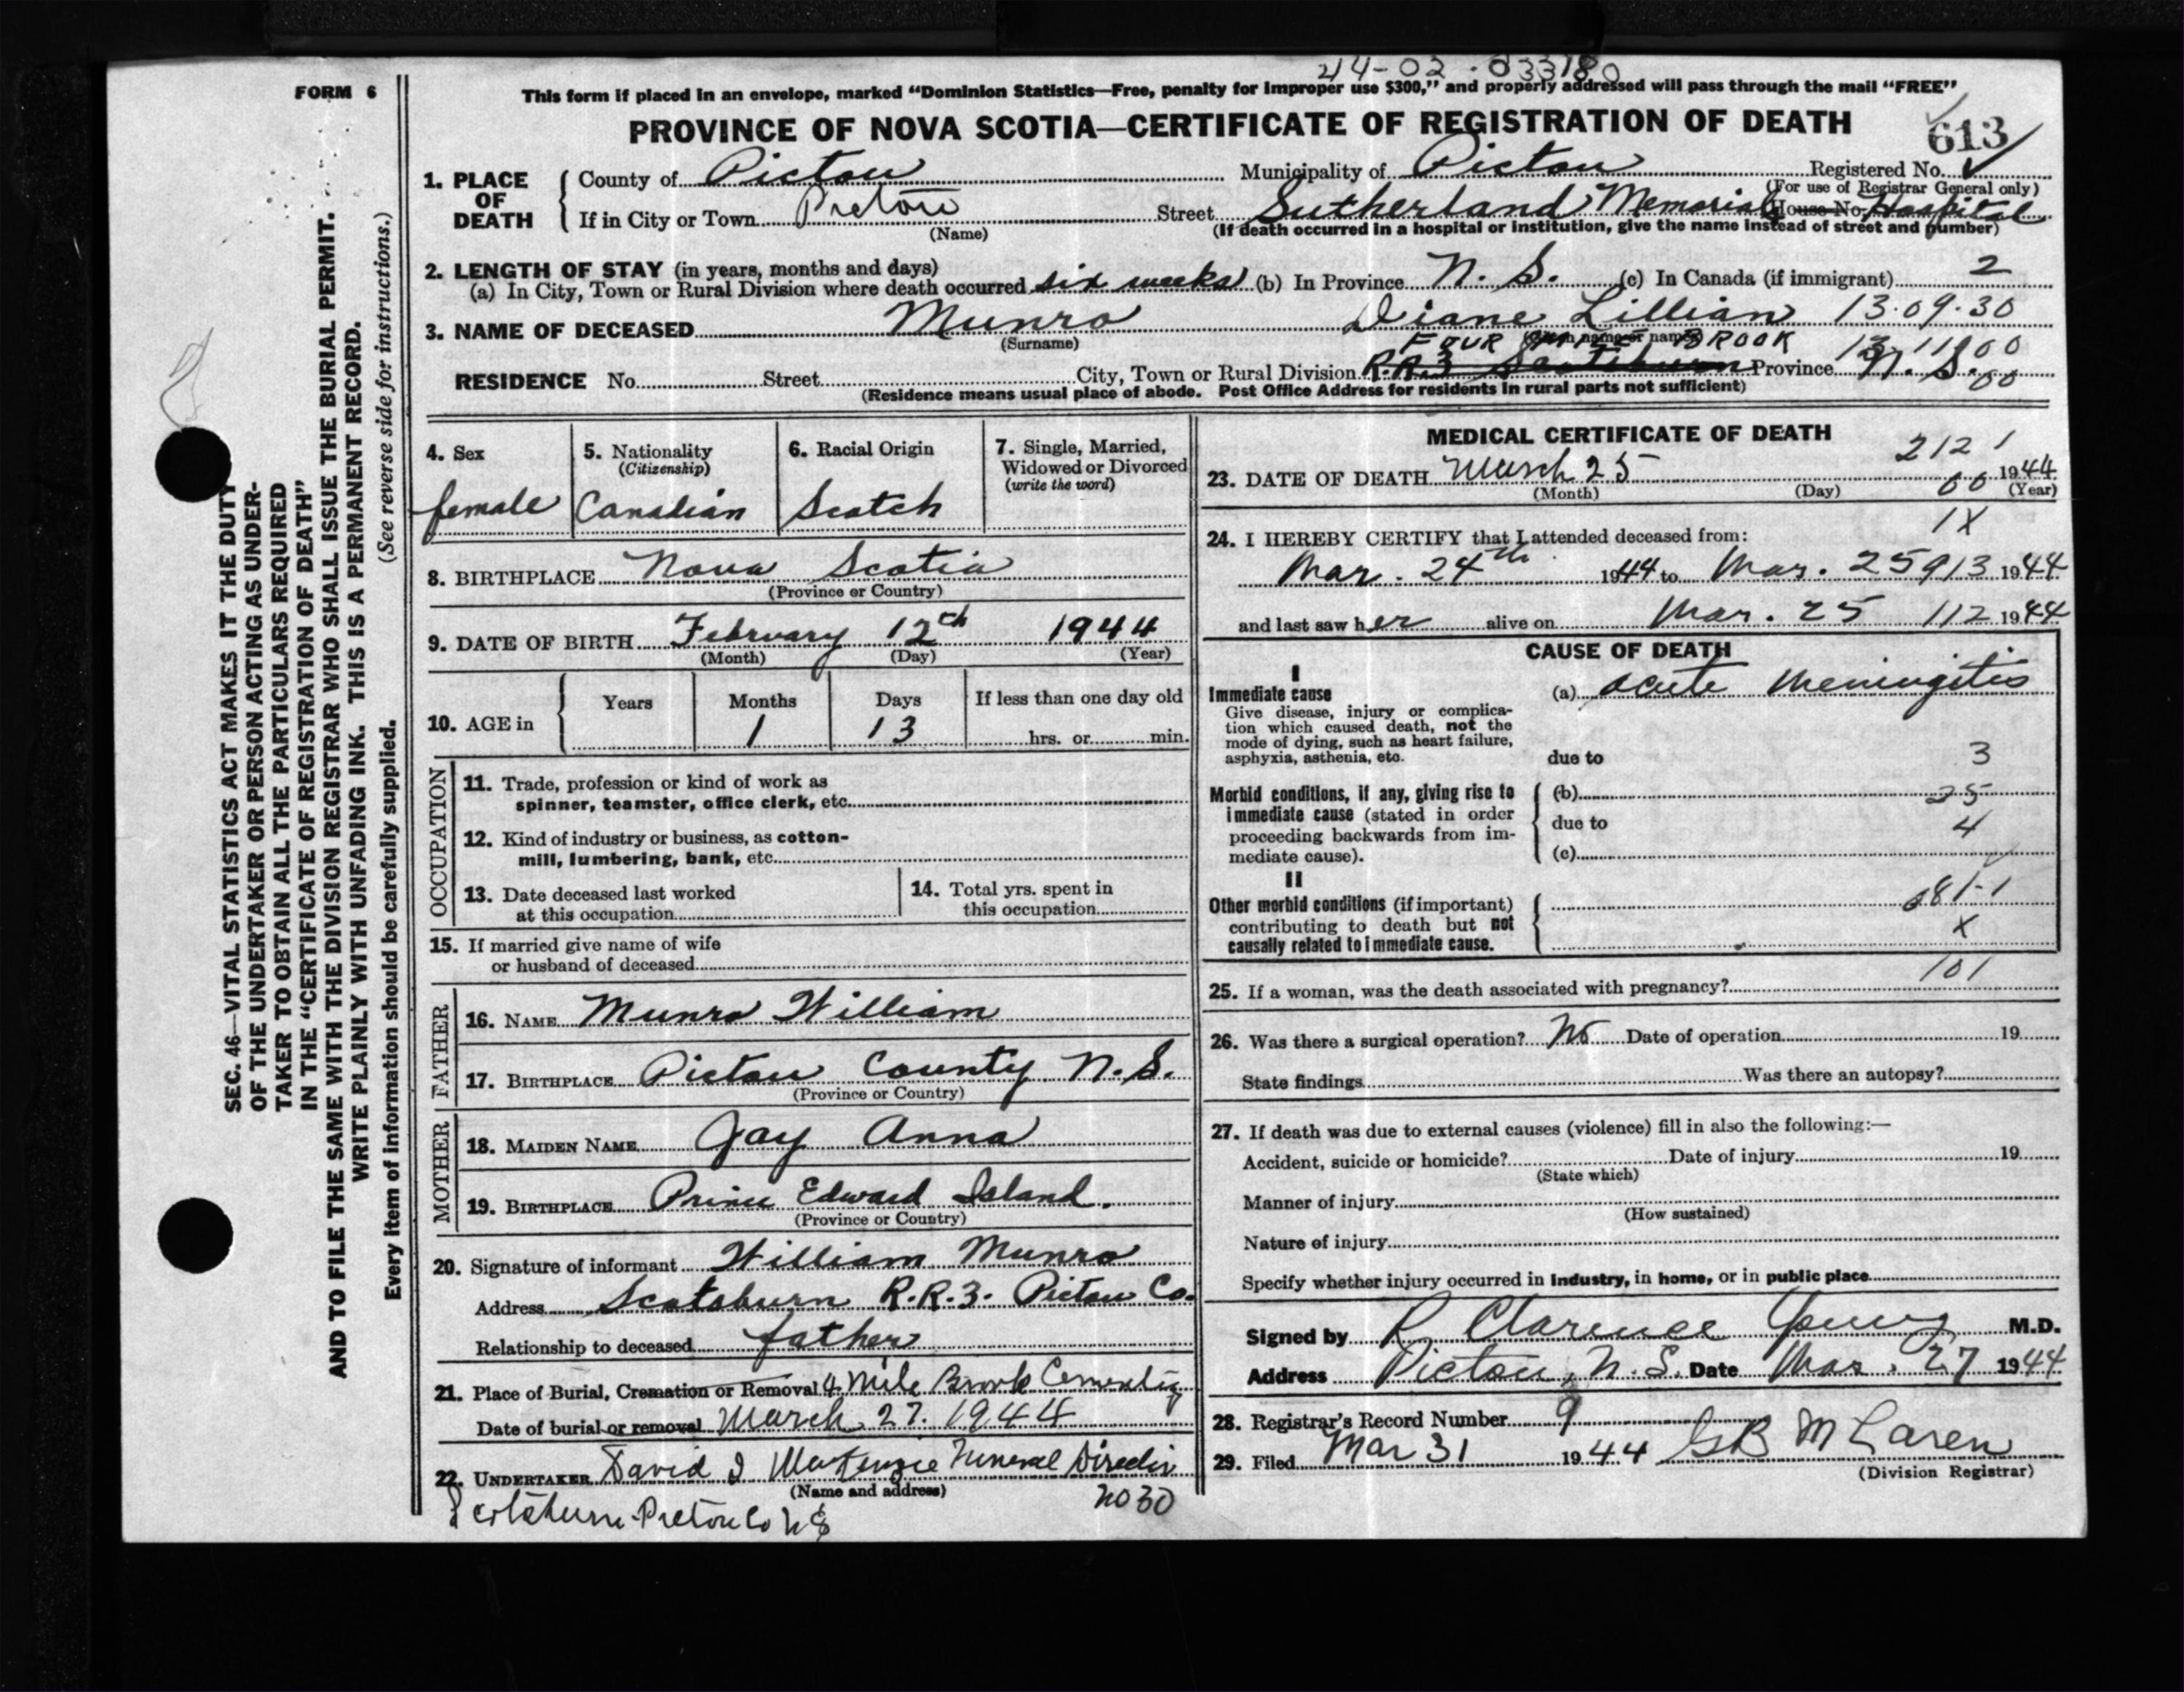 44-02-033180
FORM 6
This form if placed in an envelope, marked “Dominion Statistics—Free, penalty for improper use $300,” and properly addressed will pass through the mail “FREE”
PROVINCE OF NOVA SCOTIA—CERTIFICATE OF REGISTRATION OF DEATH
613
1. PLACE OF DEATH { County of Pictou Municipality of Pictou Registered No.
(For use of Registrar General only)
If in City or Town Pictou Street Sutherland Memorial House No. Hospital
(Name) (If death occurred in a hospital or institution, give the name instead of street and number)
2. LENGTH OF STAY (in years, months and days)
(a) In City, Town or Rural Division where death occurred six weeks (b) In Province N. S. (c) In Canada (if immigrant) 2
3. NAME OF DECEASED Munro Diane Lillian 13.09.30
(Surname) (Given name or names)
FOUR MILE BROOK
RESIDENCE No. Street City, Town or Rural Division R.R.3 Scotsburn Province N. S.
(Residence means usual place of abode. Post Office Address for residents in rural parts not sufficient)
4. Sex
female
5. Nationality
(Citizenship)
Canadian
6. Racial Origin
Scotch
7. Single, Married,
Widowed or Divorced
(write the word)
8. BIRTHPLACE Nova Scotia
(Province or Country)
9. DATE OF BIRTH February 12th 1944
(Month) (Day) (Year)
10. AGE in { Years Months Days If less than one day old
1 13 hrs. or min.
OCCUPATION
11. Trade, profession or kind of work as
spinner, teamster, office clerk, etc.
12. Kind of industry or business, as cotton-
mill, lumbering, bank, etc.
13. Date deceased last worked
at this occupation
14. Total yrs. spent in
this occupation
15. If married give name of wife
or husband of deceased
FATHER
16. NAME Munro William
17. BIRTHPLACE Pictou County N.S.
(Province or Country)
MOTHER
18. MAIDEN NAME Jay Anna
19. BIRTHPLACE Prince Edward Island.
(Province or Country)
20. Signature of informant William Munro
Address Scotsburn R.R.3. Pictou Co.
Relationship to deceased father
21. Place of Burial, Cremation or Removal 4 Mile Brook Cemetery
Date of burial or removal March 27. 1944
22. UNDERTAKER David I MacKenzie Funeral Director
(Name and address)
Scotsburn Pictou Co N S
2030
MEDICAL CERTIFICATE OF DEATH
212 1
23. DATE OF DEATH March 25 1944
(Month) (Day) (Year)
00
1X
24. I HEREBY CERTIFY that I attended deceased from:
Mar. 24th 1944 to Mar. 25 913 1944
and last saw her alive on Mar. 25 112 1944
CAUSE OF DEATH
I
Immediate cause
Give disease, injury or complica-
tion which caused death, not the
mode of dying, such as heart failure,
asphyxia, asthenia, etc.
(a) Acute Meningitis
due to 3
Morbid conditions, if any, giving rise to
immediate cause (stated in order
proceeding backwards from im-
mediate cause).
(b) 25
due to 4
(c)
II
Other morbid conditions (if important)
contributing to death but not
causally related to immediate cause.
081-1
X
101
25. If a woman, was the death associated with pregnancy?
26. Was there a surgical operation? No Date of operation 19
State findings Was there an autopsy?
27. If death was due to external causes (violence) fill in also the following:—
Accident, suicide or homicide? Date of injury 19
(State which)
Manner of injury
(How sustained)
Nature of injury
Specify whether injury occurred in industry, in home, or in public place
Signed by R Clarence Young M.D.
Address Pictou, N. S. Date Mar. 27 1944
28. Registrar's Record Number 9
29. Filed Mar 31 1944 GB McLaren
(Division Registrar)
SEC. 46—VITAL STATISTICS ACT MAKES IT THE DUTY
OF THE UNDERTAKER OR PERSON ACTING AS UNDER-
TAKER TO OBTAIN ALL THE PARTICULARS REQUIRED
IN THE “CERTIFICATE OF REGISTRATION OF DEATH”
AND TO FILE THE SAME WITH THE DIVISION REGISTRAR WHO SHALL ISSUE THE BURIAL PERMIT.
WRITE PLAINLY WITH UNFADING INK. THIS IS A PERMANENT RECORD.
Every item of information should be carefully supplied. (See reverse side for instructions.)